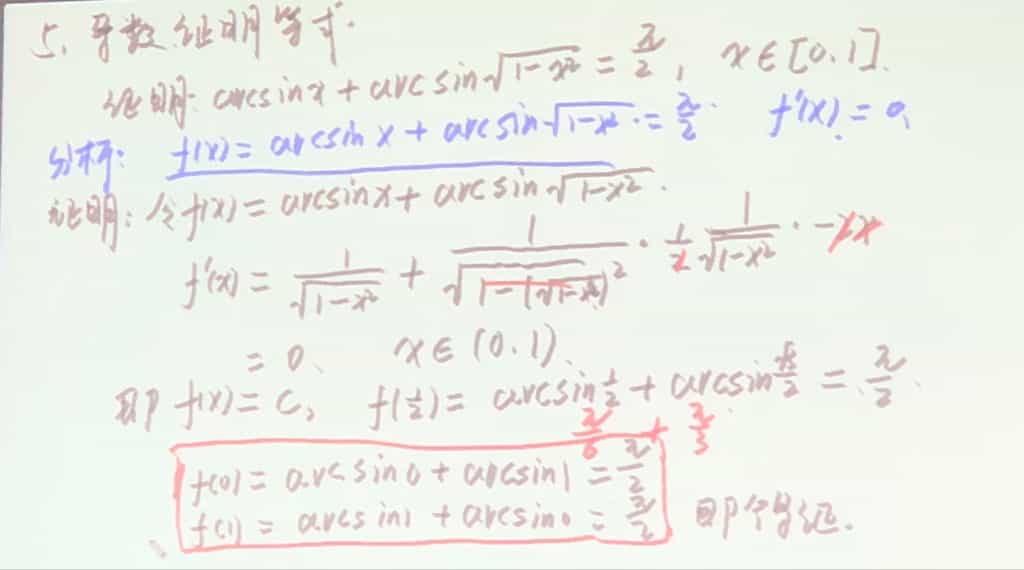 5. 导数证明等式.
证明: arcsinx + arcsin√(1-x²) = π/2, x∈[0.1].
分析: f(x) = arcsin x + arcsin√(1-x²) = π/2. f'(x) = 0.
证明: 令f(x) = arcsinx + arcsin√(1-x²).
f'(x) = 1/√(1-x²) + 1/√(1-(√(1-x²))²) · 1/2 1/√(1-x²) · -2x
= 0. x∈(0.1).
即 f(x) = C, f(1/2) = arcsin1/2 + arcsin√3/2 = π/2.
π/6 + π/3
f(0) = arcsin0 + arcsin1 = π/2
f(1) = arcsin1 + arcsin0 = π/2 即得证.